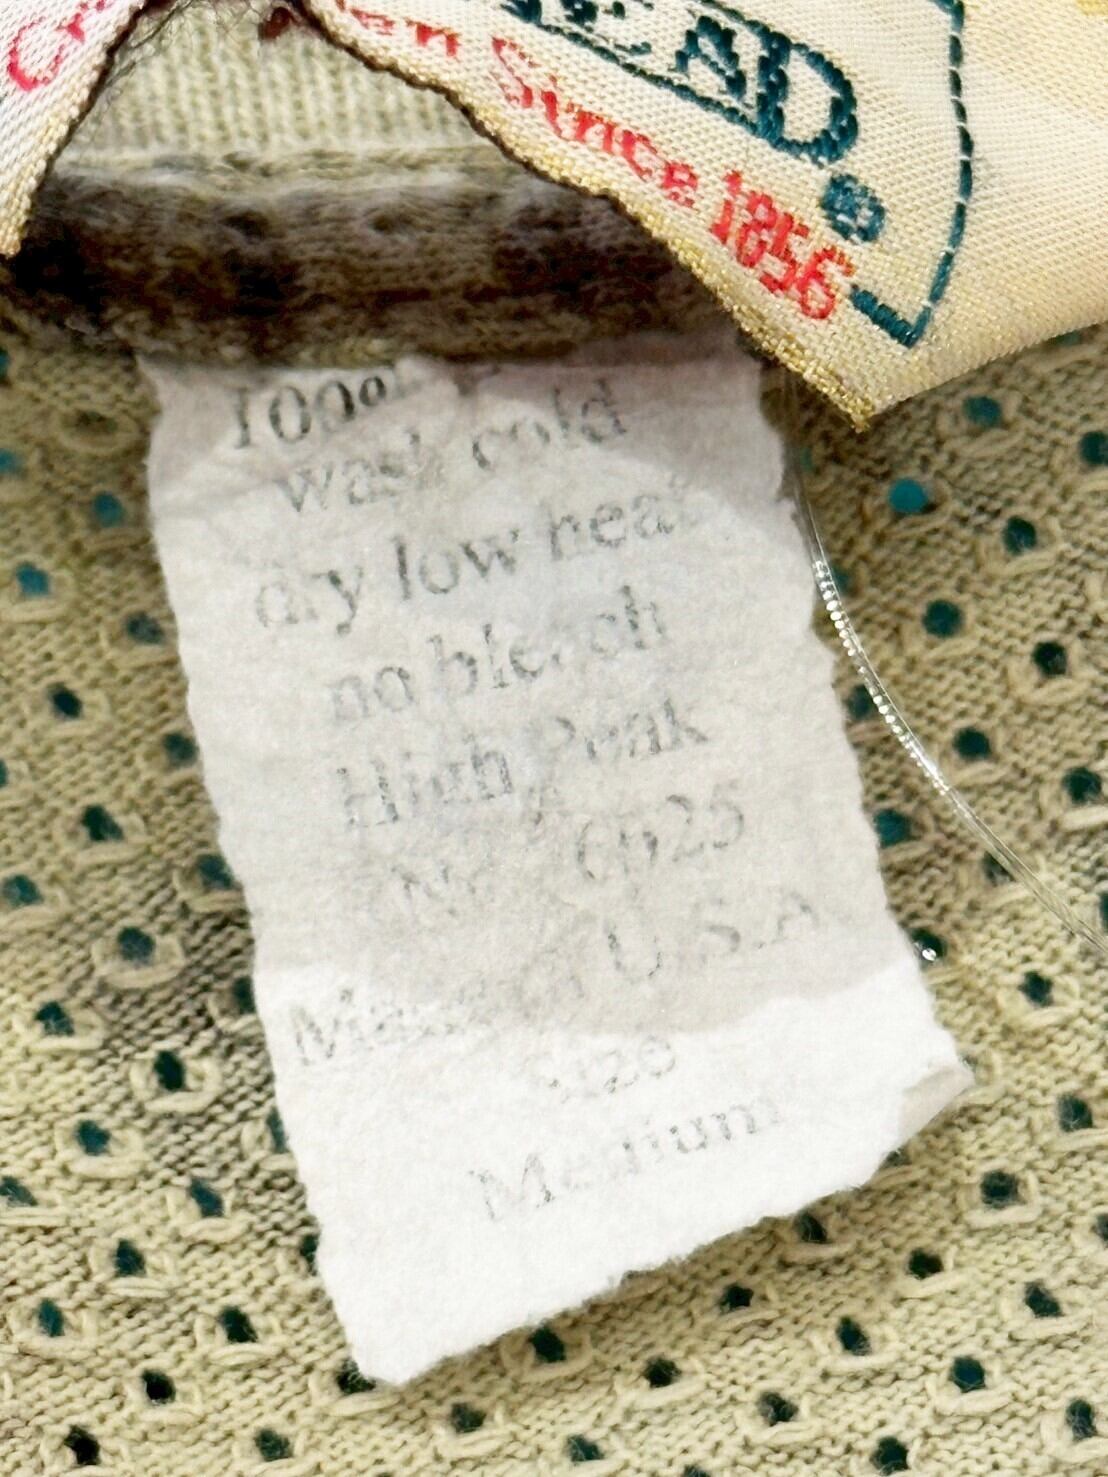 EAD.®
en Since 1856
100%
wash cold
dry low heat
no bleach
High Peak
U.S.A
Size
Medium